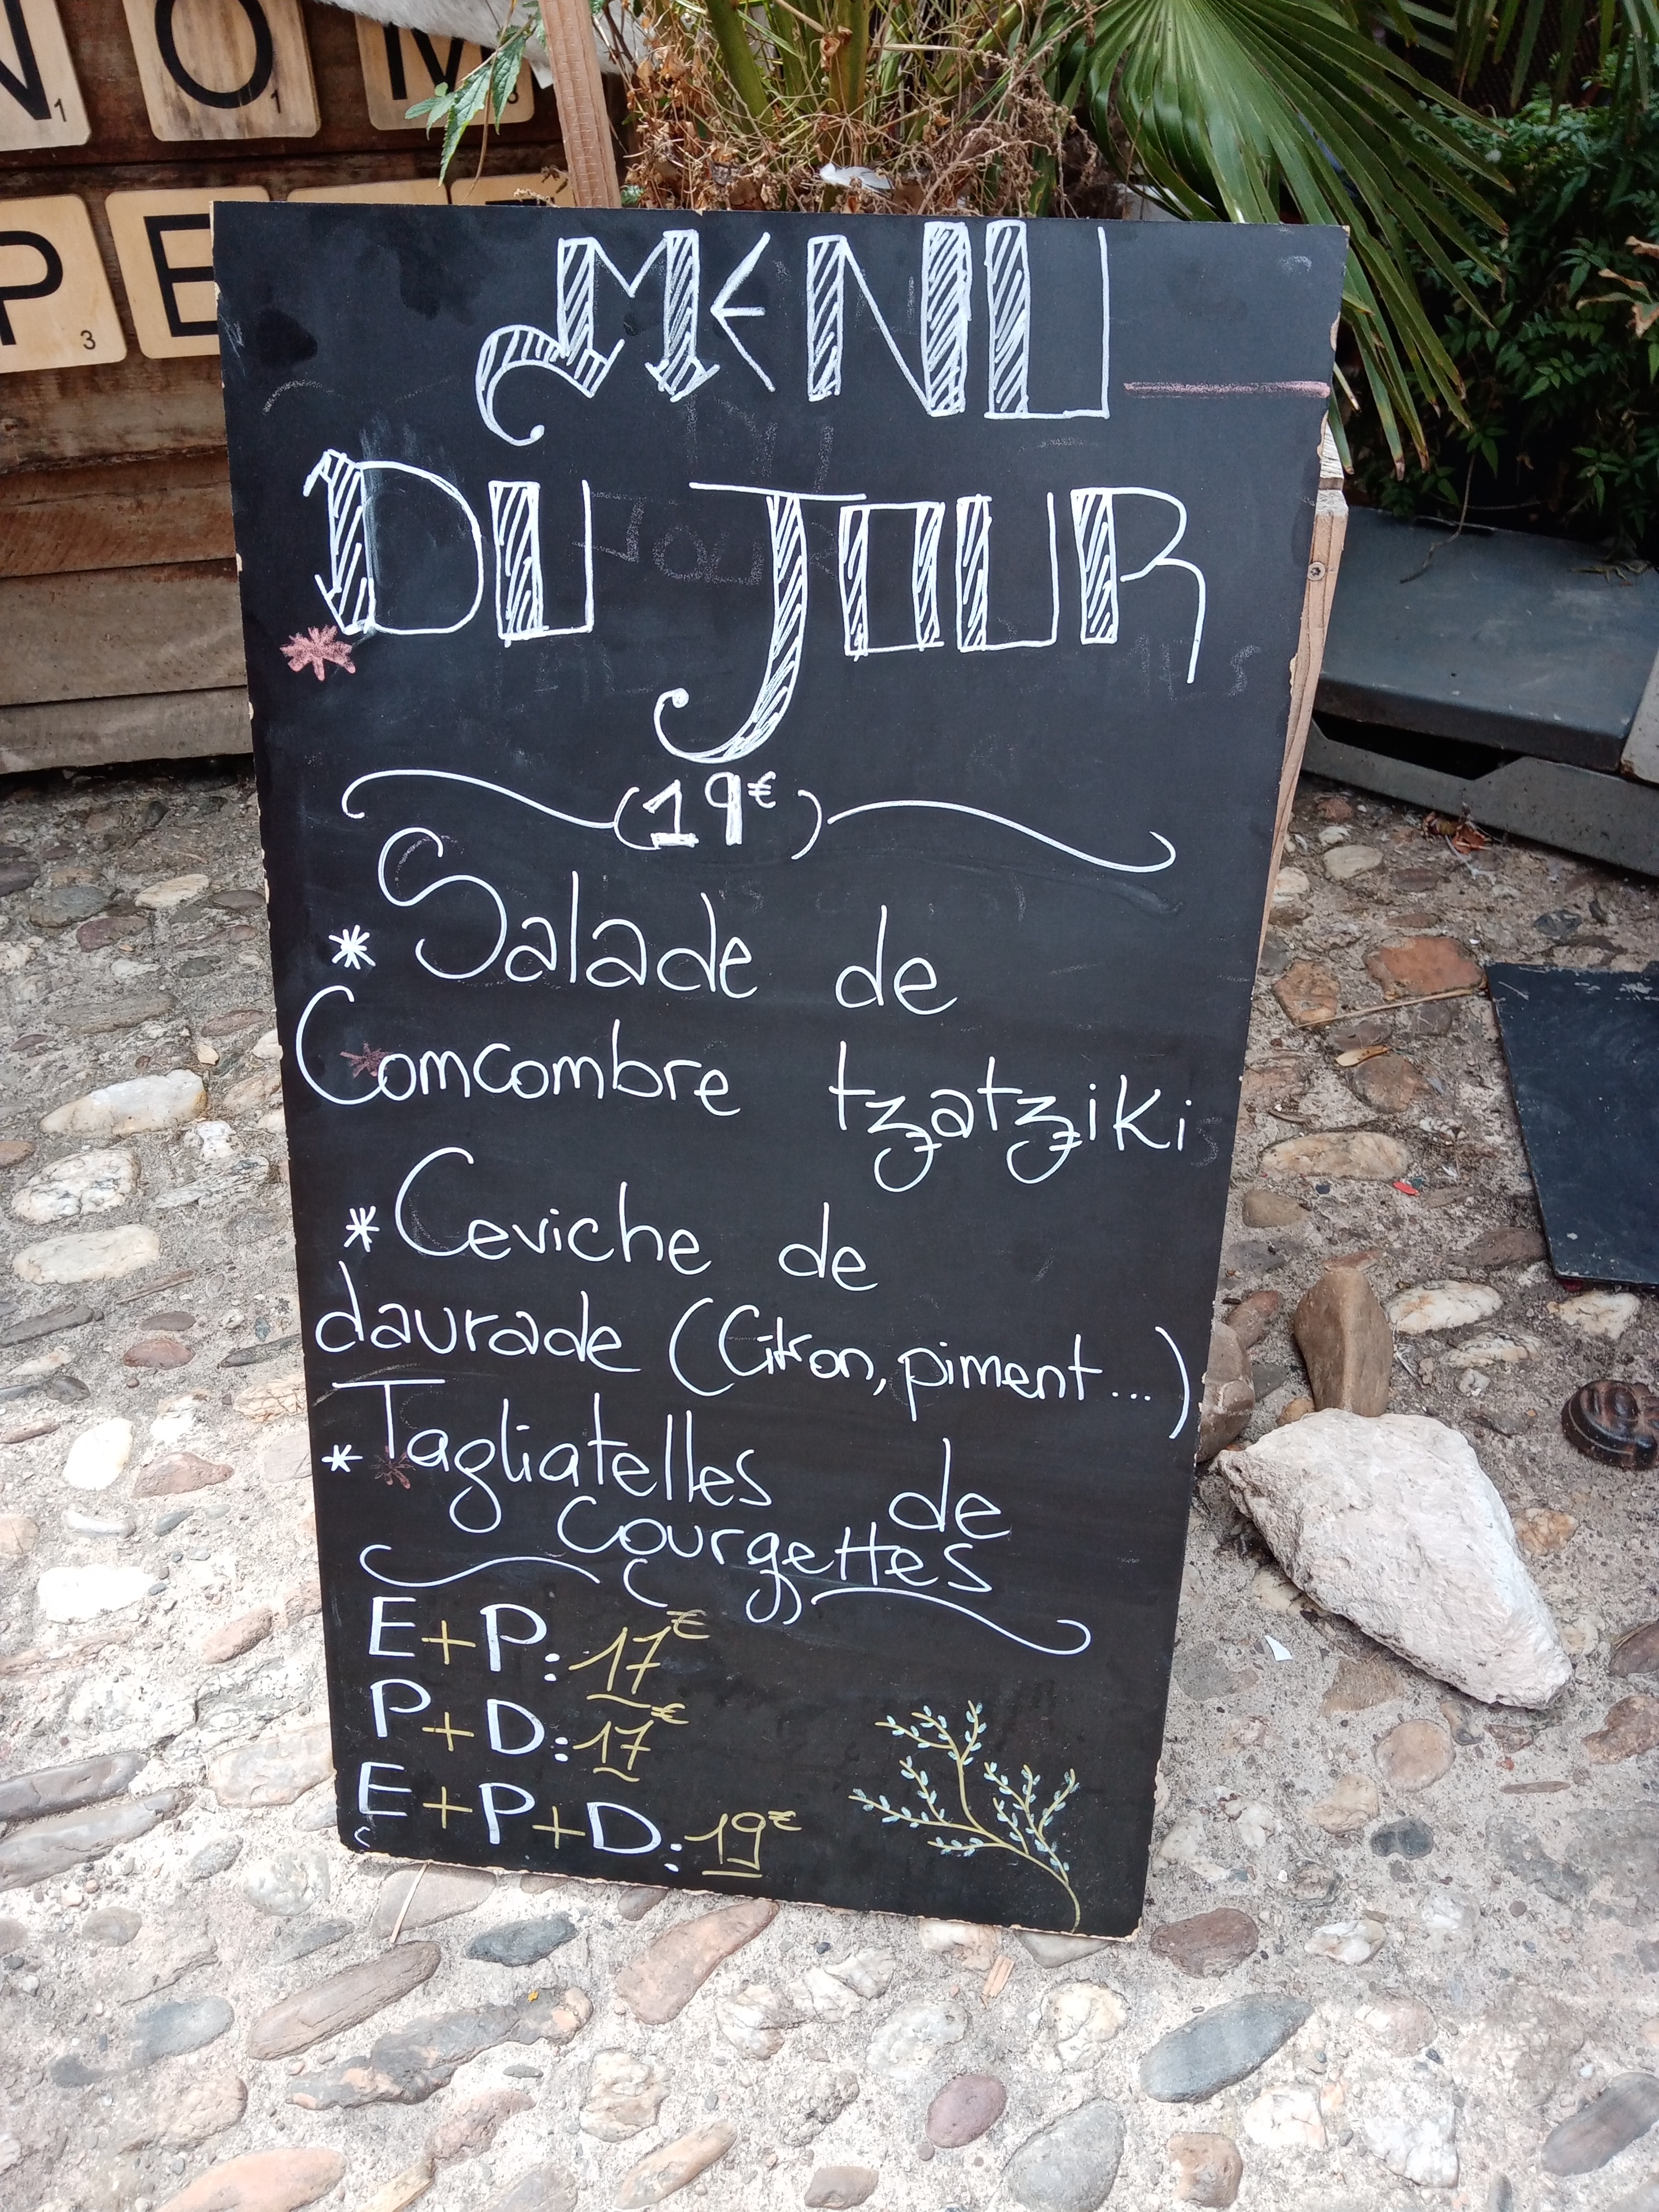 N1 O1 M3
P3 E
MENU
DU JOUR
(19€)
* Salade de
Comcombre tzatziki
* Ceviche de
daurade (Citron, piment...)
* Tagliatelles de
courgettes
E+P: 17€
P+D: 17€
E+P+D: 19€